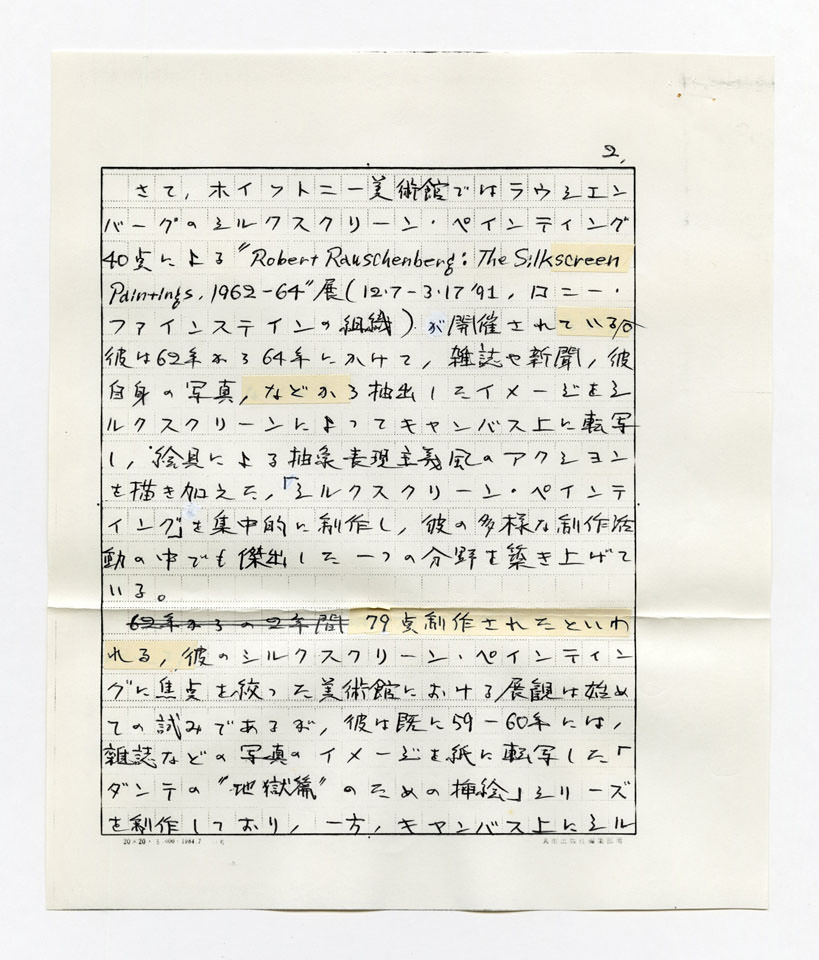 2.
さて，ホイットニー美術館ではラウシェン
バーグのシルクスクリーン・ペインティング
40点による"Robert Rauschenberg: The Silkscreen
Paintings, 1962-64"展(12・7-3・17'91，ロニー・
ファインステインの組織)が開催されている。
彼は62年から64年にかけて，雑誌や新聞，彼
自身の写真，などから抽出したイメージをシ
ルクスクリーンによってキャンバス上に転写
し，絵具による抽象表現主義風のアクション
を描き加えた，「シルクスクリーン・ペインテ
ィング」を集中的に制作し，彼の多様な制作活
動の中でも傑出した一つの分野を築き上げて
いる。
62年からの2年間79点制作されたといわ
れる，彼のシルクスクリーン・ペインティン
グに焦点を絞った美術館における展観は始め
ての試みであるが，彼は既に59-60年には，
雑誌などの写真のイメージを紙に転写した「
ダンテの"地獄篇"のための挿絵」シリーズ
を制作しており，一方，キャンバス上にシル
20×20
1984.7